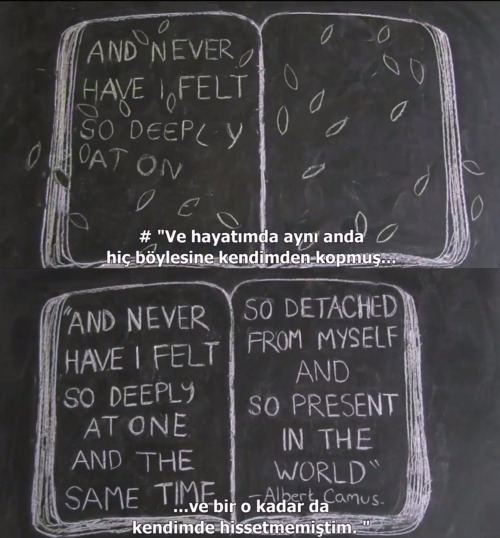 AND NEVER
HAVE I FELT
SO DEEPLY
AT ON
# "Ve hayatımda aynı anda
hiç böylesine kendimden kopmuş...
"AND NEVER
HAVE I FELT
SO DEEPLY
AT ONE
AND THE
SAME TIME
SO DETACHED
FROM MYSELF
AND
SO PRESENT
IN THE
WORLD"
-Albert Camus.
...ve bir o kadar da
kendimde hissetmemiştim. "